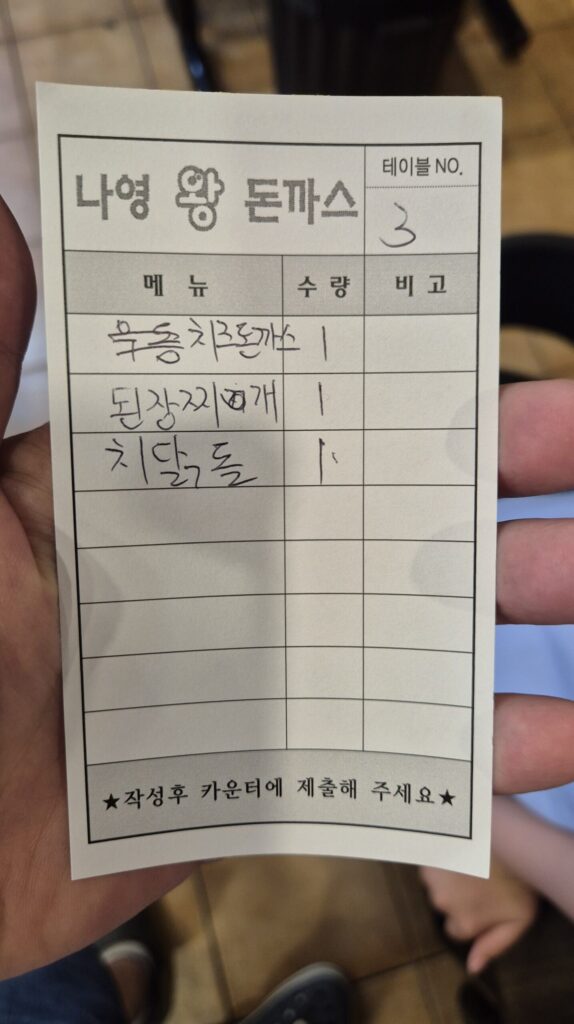 나영 왕 돈까스
테이블 NO.
3
메 뉴 수 량 비 고
치즈돈까스 1
된장찌개 1
치닭돌 1
★작성후 카운터에 제출해 주세요★